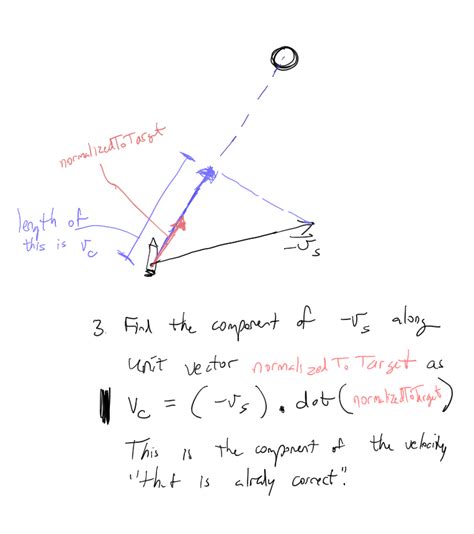 normalizedToTarget
length of
this is v_c
-v_s
3. Find the component of -v_s along
unit vector normalizedToTarget as
v_c = (-v_s).dot(normalizedToTarget)
This is the component of the velocity
"that is alrady correct".